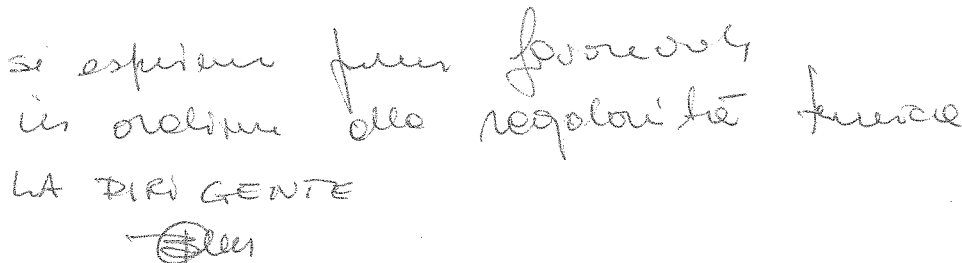 si esprime parere favorevole
in ordine alla regolarità tecnica
LA DIRIGENTE